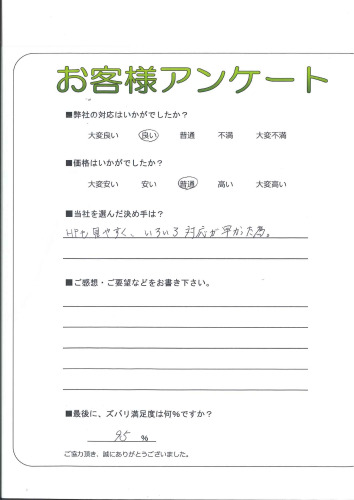 お客様アンケート
■弊社の対応はいかがでしたか？
大変良い 良い 普通 不満 大変不満
■価格はいかがでしたか？
大変安い 安い 普通 高い 大変高い
■当社を選んだ決め手は？
HPも見やすく、いろいろ対応が早かった為。
■ご感想・ご要望などをお書き下さい。
■最後に、ズバリ満足度は何％ですか？
95 ％
ご協力頂き、誠にありがとうございました。